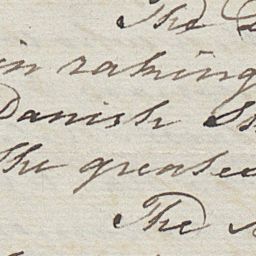 The
in raking
Danish
the greate
The